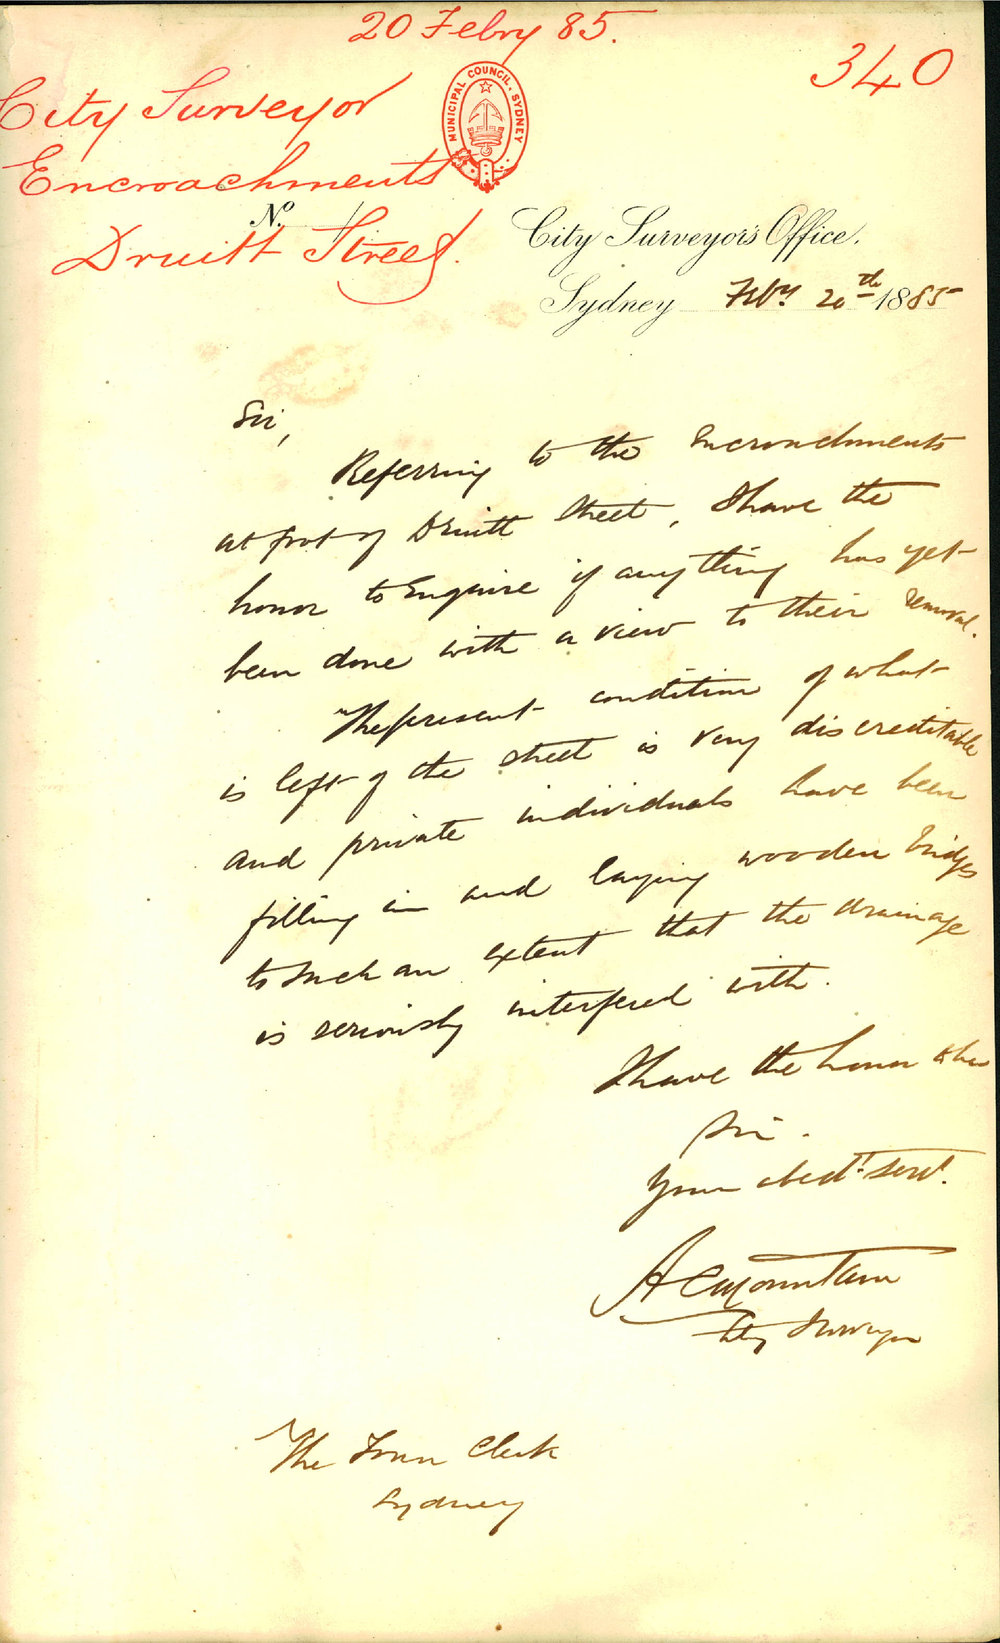 20 Febry 85.
340
City Surveyor
Encroachments
Druitt Street.
MUNICIPAL COUNCIL. SYDNEY
No.
City Surveyor's Office.
Sydney Feby 20th 1885
Sir,
Referring to the encroachments
at foot of Druitt Street, I have the
honor to enquire if anything has yet
been done with a view to their removal.
The present condition of what
is left of the street is very discreditable
and private individuals have been
filling in and laying wooden bridges
to such an extent that the drainage
is seriously interfered with.
I have the honor to be
Sir.
Your obedt. servt.
A C Mountain
City Surveyor
The Town Clerk
Sydney